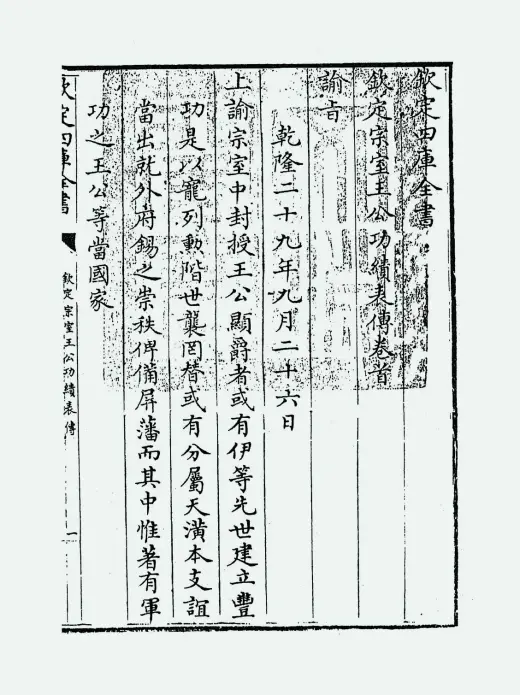 欽定四庫全書
欽定宗室王公功績表傳卷首
諭旨
乾隆二十九年九月二十六日
上諭宗室中封授王公顯爵者或有伊等先世建立豐
功是以寵列勳階世襲罔替或有分屬天潢本支誼
當出就外府錫之崇秩俾備屏藩而其中惟著有軍
功之王公等當國家
欽定四庫全書
欽定宗室王公功績表傳
一